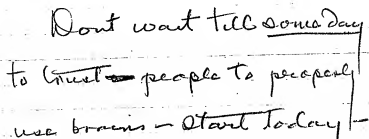 Dont wait till some day
to trust people to properly
use brains - start today -